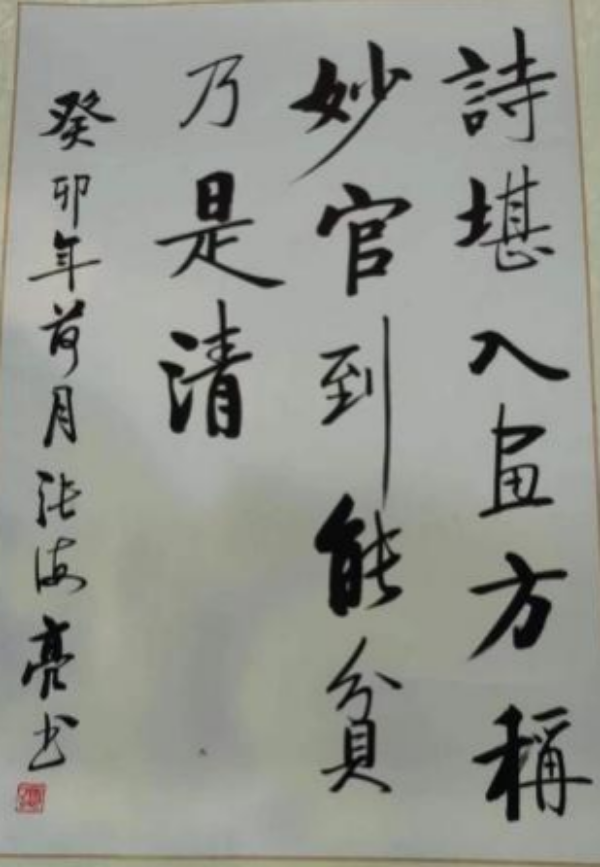 詩堪入画方稱
妙官到能貧
乃是清
癸卯年荷月张海亮书